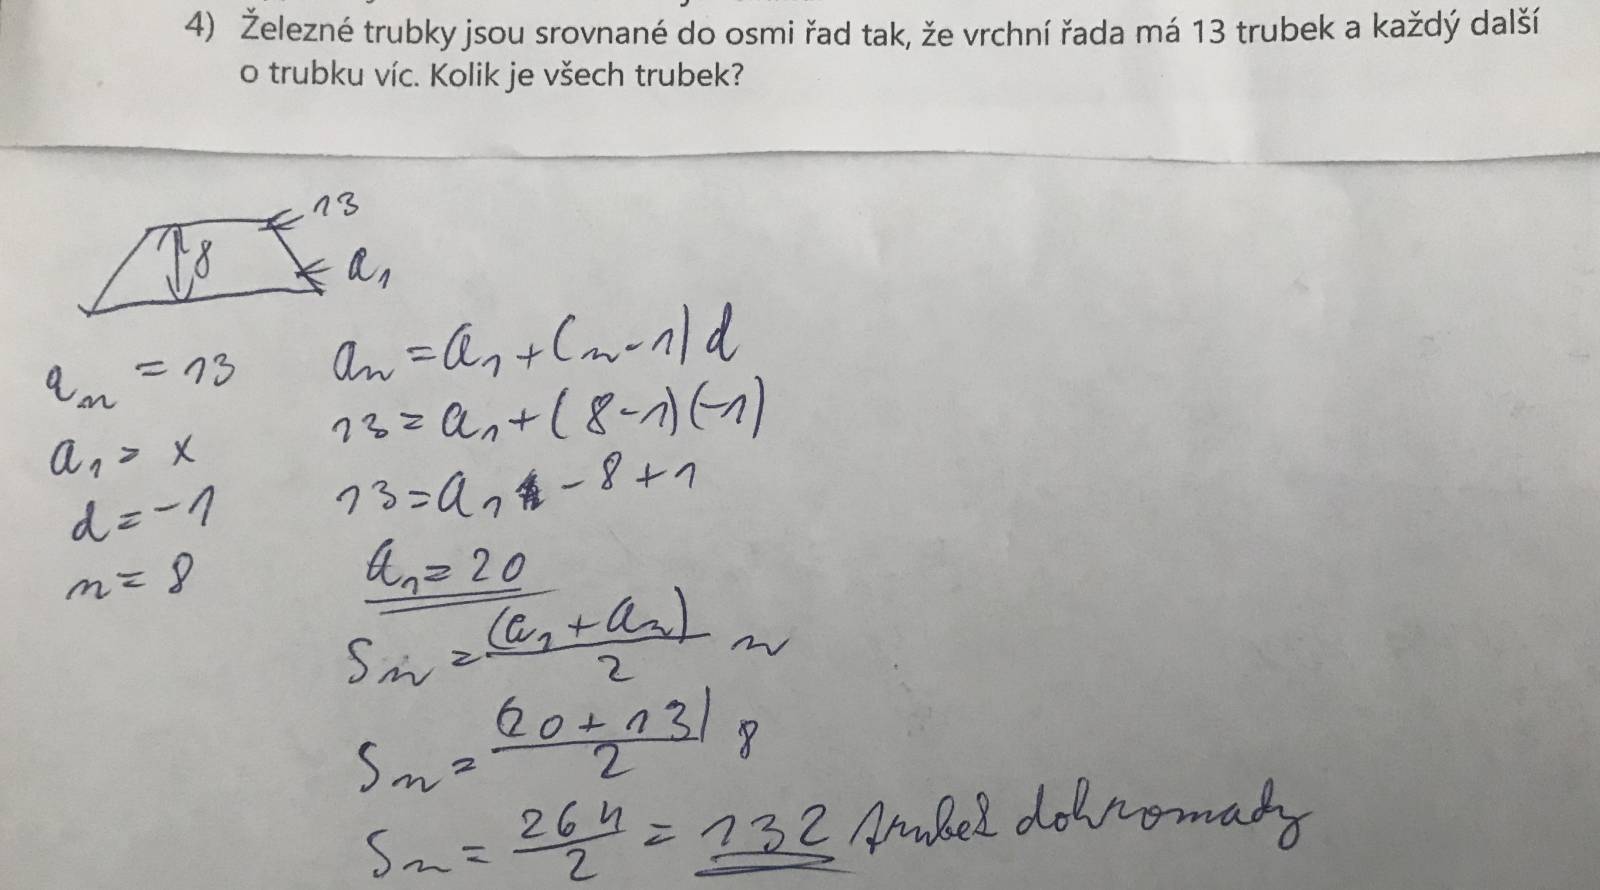 4) Železné trubky jsou srovnané do osmi řad tak, že vrchní řada má 13 trubek a každý další
o trubku víc. Kolik je všech trubek?
13
8
a₁
aₙ = 13
a₁ = x
d = -1
n = 8
aₙ = a₁ + (n-1) d
13 = a₁ + (8-1)(-1)
13 = a₁ - 8 + 1
a₁ = 20
Sₙ = (a₁ + aₙ)/2 n
Sₙ = (20 + 13)/2 8
Sₙ = 264/2 = 132 trubek dohromady